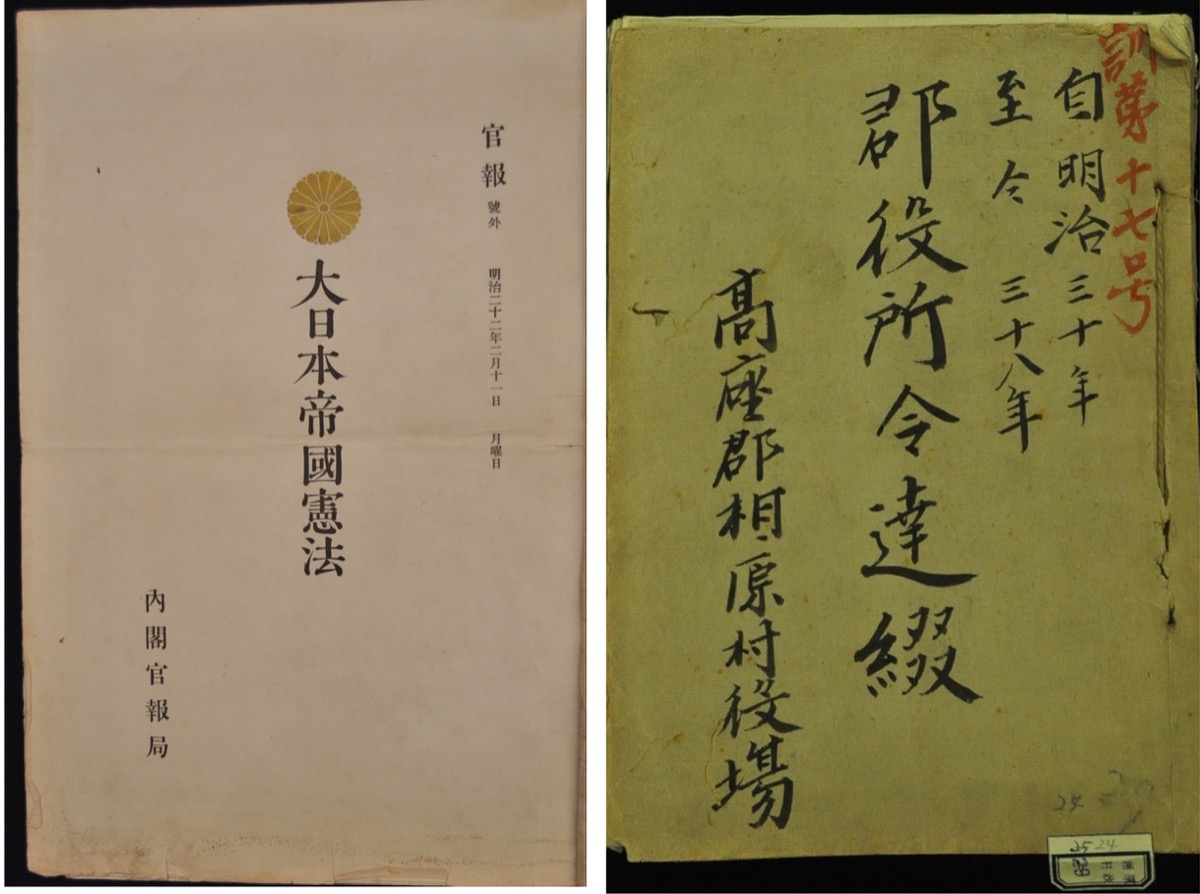 官報 號外 明治二十二年二月十一日 月曜日
大日本帝國憲法
內閣官報局
訓第十七号
自明治三十年
至仝三十八年
郡役所令達綴
高座郡相原村役場
24
2524